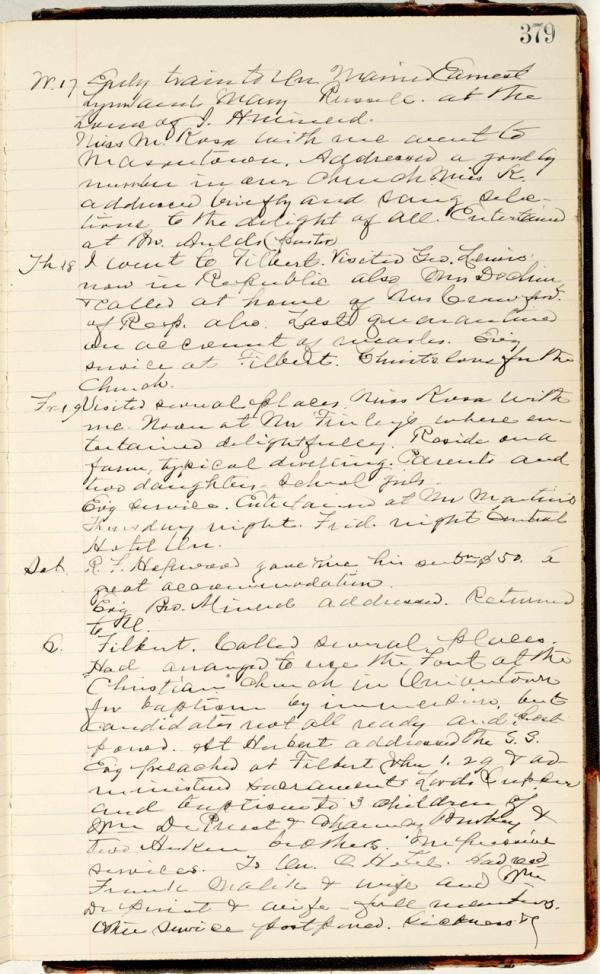 379
W. 17 Early train to Un. Married Earnest
Lynn and Mary Russell. at the
home of J. H. Minerd.
Miss M. Kosa with me went to
Masontown. Addressed a goodly
number in our Church Miss K.
addressed briefly and sang selec-
tions to the delight of all. Entertained
at Bro. Aulds (pastor)
Th. 18 I went to Filbert. Visited Geo. Lewis
now in Republic also Mrs
& called at home of Mrs Crawford
of Rep. also. Last quarantined
on account of measles. Evg
service at Filbert. Christs love for the
Church.
Fr. 19 Visited several places, Miss Kosa with
me. Noon at Mr Finley's where en-
tertained delightfully. Reside on a
farm, typical dwelling. Parents and
two daughters, school girls.
Evg service. Entertained at Mr Martins
Thursday night. Frid. night Central
Hotel Un.
Sat. R. F. Hopwood gave me his $50. a
great accommodation.
Evg Bro. Minerd addressed. Returned
to U.
S. Filbert. Called several places.
Had arranged to use the Font at the
Christian Church in Uniontown
for baptism by immersion, but
candidates not all ready and post
poned. At Herbert addressed the S. S.
Evg preached at Filbert John 1. 29 & ad-
ministered sacraments Lords Supper
and baptism to 3 children of
Wm DePriest &  &
two  brothers. Impressive
services. To Un. C. Hotel. Had
Frank Malik & wife and Wm
De Priest & wife full members.
Other service postponed. Sickness &c